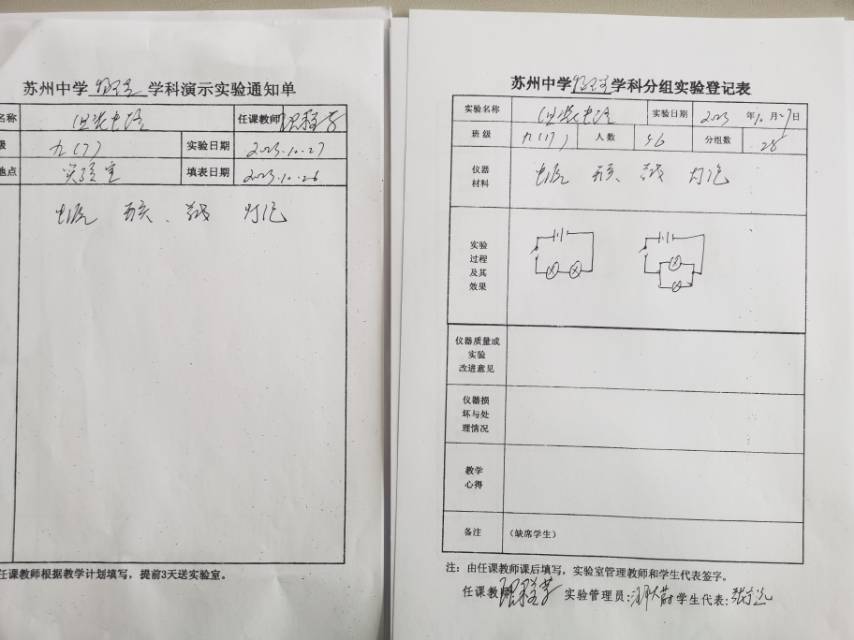 苏州中学物理学科演示实验通知单
名称 组装电路 任课教师
级 九(7) 实验日期 2023.10.27
地点 实验室 填表日期 2023.10.26
电源 开关、导线 灯泡
任课教师根据教学计划填写，提前3天送实验室。
苏州中学物理学科分组实验登记表
实验名称 组装电路 实验日期 2023年10月27日
班级 九(7) 人数 56 分组数 28
仪器材料 电源 开关、导线 灯泡
实验
过程
及其
效果
仪器质量或
实验
改进意见
仪器损
坏与处
理情况
教学
心得
备注 (缺席学生)
注：由任课教师课后填写，实验室管理教师和学生代表签字。
任课教师: 实验管理员: 学生代表: